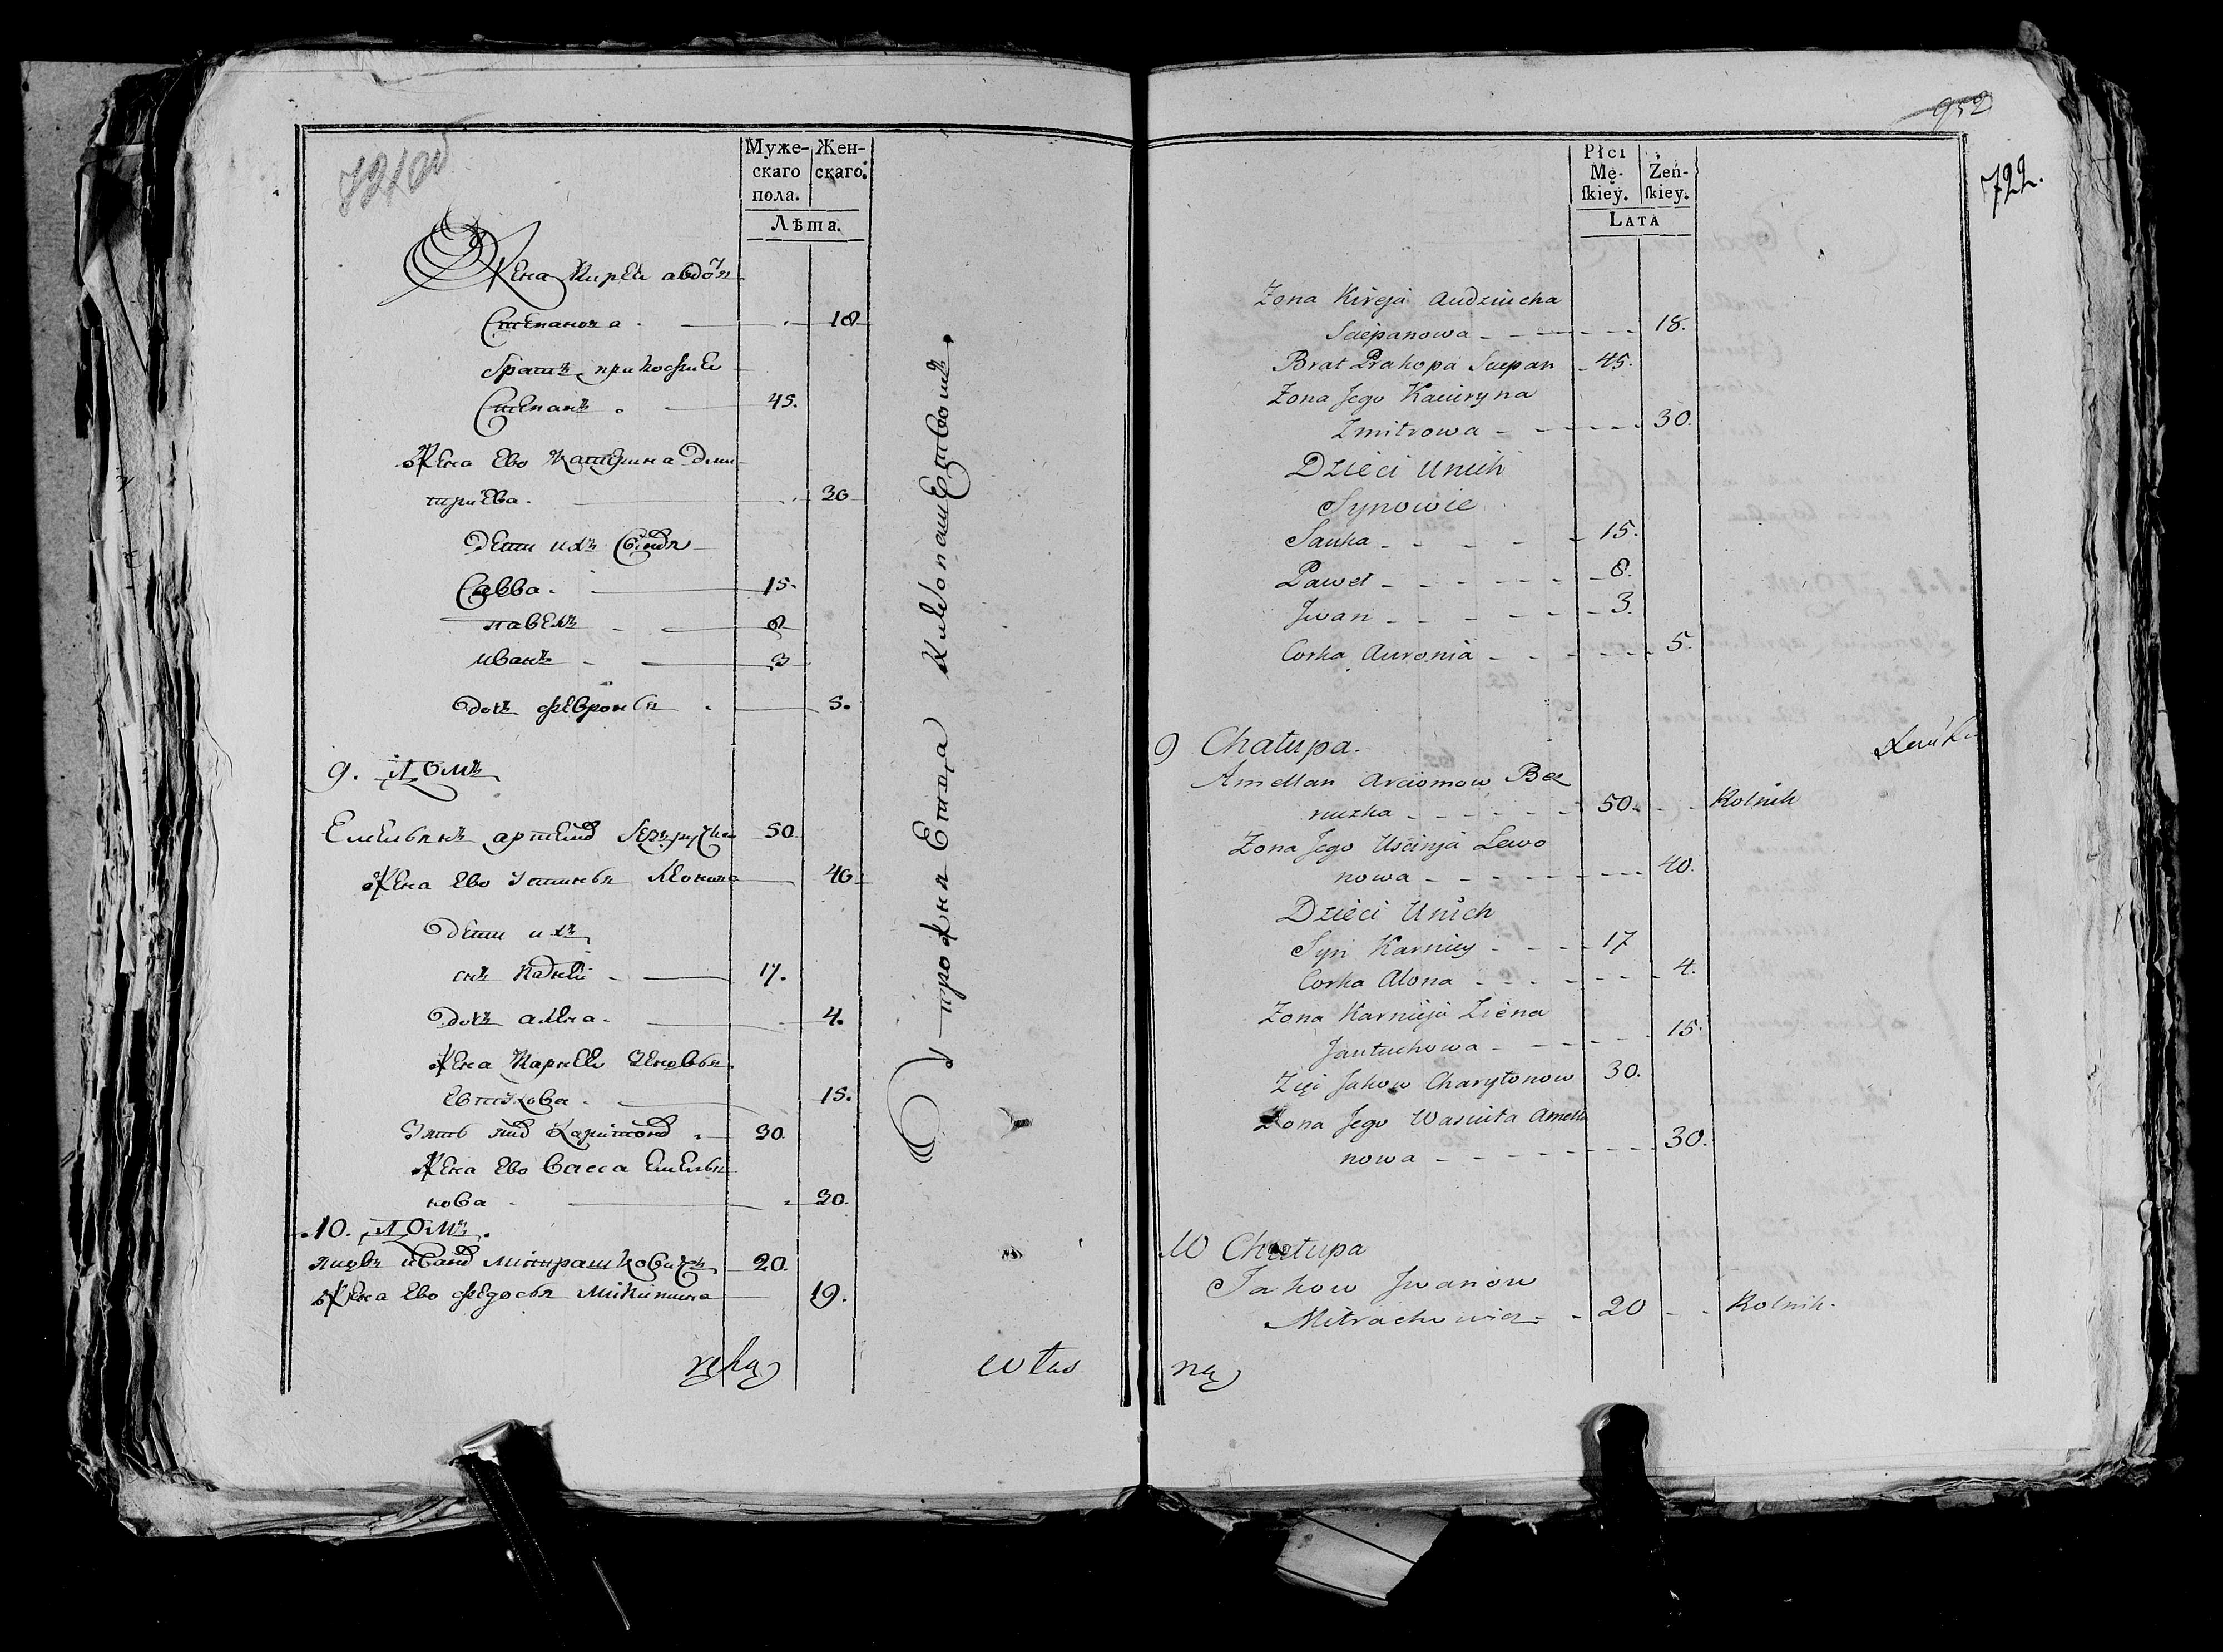 721 об
Муже-
скаго
пола.
Жен-
скаго.
Лѣта.
Жена Кирея авдоч
Степанова 18
братъ прикофие
Степанъ 45.
Жена Ево Катерина дми
трiева. 30
Дети ихъ
Савва. 15.
павелъ 8
иванъ 3
дочь февронья 5.
9. Домъ
Емельянъ артемо 50.
Жена Ево устинья Леонова 40
Дети ихъ
снъ 17.
Дочь алена. 4.
Жена Карнея Зеновья
Евтухова 15.
Зять Харитоно 30.
Жена Ево Васса Емелья
нова 30.
10. Домъ
яковъ ивано 20.
Жена Ево федосья Микитина 19.
ręką
włas
952
722.
Płci
Mę-
ſkiey.
Żeń-
ſkiey.
LATA
Zona Kireja Audziucha
Sciepanowa 18.
Brat Prakopa Sciepan 45.
Zona Jego Kaciryna
Zmitrowa 30.
Dzieci Unich
Synowie
Sauka 15.
Paweł 8.
Jwan 3.
Corka Auronia 5.
9 Chałupa.
Amellan Arciomow Bez
ruczka 50. Rolnik
Zona Jego Uścinja Lewo
nowa 40.
Dzieci Unich
Syn Karniey 17
Corka Alona 4.
Zona Karnieja Ziena
Jautuchowa 15.
Zięć Jakow Charytonow 30.
Zona Jego Wasiuta Amella
nowa 30.
10 Chałupa
Jakow Jwanow
Mitrachowicz 20 Rolnik.
ną